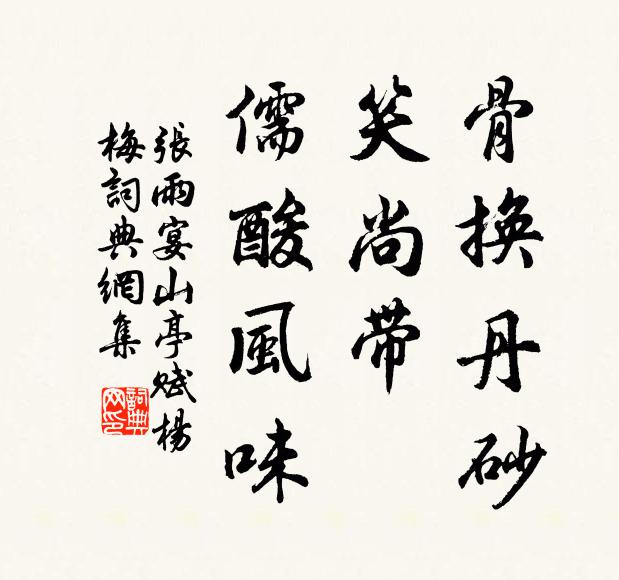 骨換丹砂
笑尚带
儒酸風味
張雨宴山亭賦楊
梅詞典網集
詞典
网印